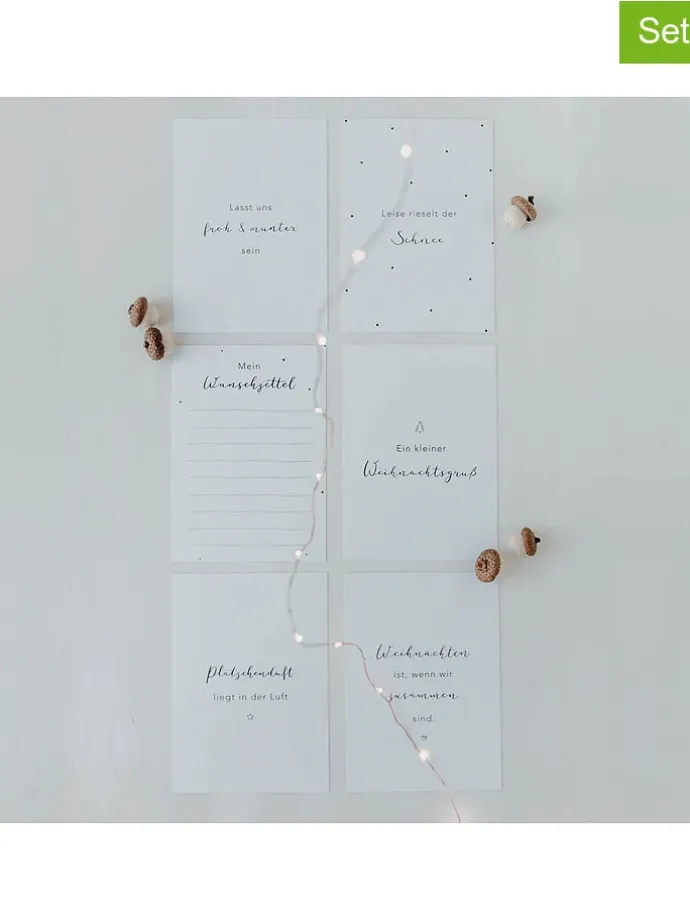 Set
Lasst uns
froh & munter
sein
Leise rieselt der
Schnee
Mein
Wunschzettel
Ein kleiner
Weihnachtsgruß
Plätzchenduft
liegt in der Luft
Weihnachten
ist, wenn wir
zusammen
sind.